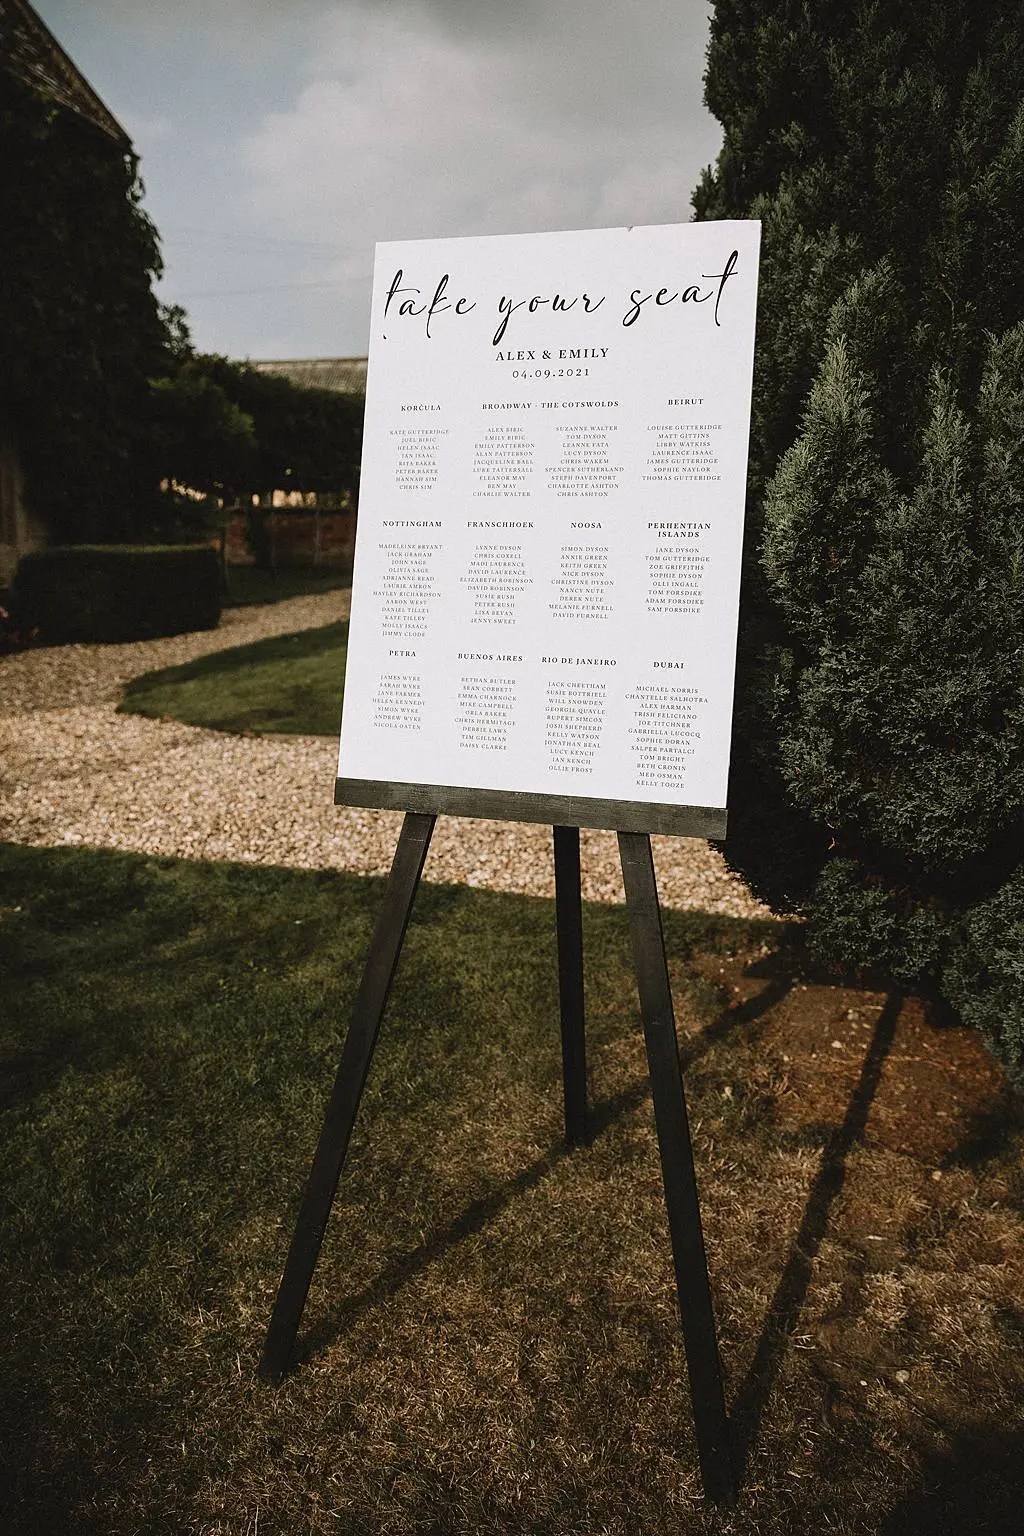 take your seat
ALEX & EMILY
04.09.2021
KORČULA
KATE GUTTERIDGE
JOEL BIBIC
HELEN ISAAC
IAN ISAAC
RITA BAKER
PETER BAKER
HANNAH SIM
CHRIS SIM
BROADWAY - THE COTSWOLDS
ALEX BIBIC
EMILY BIBIC
EMILY PATTERSON
ALAN PATTERSON
JACQUELINE BALL
LUKE TATTERSALL
ELEANOR MAY
BEN MAY
CHARLIE WALTER
SUZANNE WALTER
TOM DYSON
LEANNE FATA
LUCY DYSON
CHRIS WAKEM
SPENCER SUTHERLAND
STEPH DAVENPORT
CHARLOTTE ASHTON
CHRIS ASHTON
BEIRUT
LOUISE GUTTERIDGE
MATT GITTINS
LIBBY WATKISS
LAURENCE ISAAC
JAMES GUTTERIDGE
SOPHIE NAYLOR
THOMAS GUTTERIDGE
NOTTINGHAM
MADELEINE BRYANT
JACK GRAHAM
JOHN SAGE
OLIVIA SAGE
ADRIANNE READ
LAURIE AMRON
HAYLEY RICHARDSON
AARON WEST
DANIEL TILLEY
KATE TILLEY
MOLLY ISAACS
JIMMY CLODE
FRANSCHHOEK
LYNNE DYSON
CHRIS COXELL
MADI LAURENCE
DAVID LAURENCE
ELIZABETH ROBINSON
DAVID ROBINSON
SUSIE RUSH
PETER RUSH
LISA BEVAN
JENNY SWEET
NOOSA
SIMON DYSON
ANNIE GREEN
KEITH GREEN
NICK DYSON
CHRISTINE DYSON
NANCY NUTE
DEREK NUTE
MELANIE FURNELL
DAVID FURNELL
PERHENTIAN
ISLANDS
JANE DYSON
TOM GUTTERIDGE
ZOE GRIFFITHS
SOPHIE DYSON
OLLI INGALL
TOM FORSDIKE
ADAM FORSDIKE
SAM FORSDIKE
PETRA
JAMES WYKE
SARAH WYKE
JANE FARMER
HELEN KENNEDY
SIMON WYKE
ANDREW WYKE
NICOLA OATEN
BUENOS AIRES
BETHAN BUTLER
SEAN CORBETT
EMMA CHARNOCK
MIKE CAMPBELL
ORLA BAKER
CHRIS HERMITAGE
DEBBIE LAWS
TIM GILLMAN
DAISY CLARKE
RIO DE JANEIRO
JACK CHEETHAM
SUSIE BOTTRIELL
WILL SNOWDEN
GEORGIE QUAYLE
RUPERT SIMCOX
JOSH SHEPHERD
KELLY WATSON
JONATHAN BEAL
LUCY KENCH
IAN KENCH
OLLIE FROST
DUBAI
MICHAEL NORRIS
CHANTELLE SALHOTRA
ALEX HARMAN
TRISH FELICIANO
JOE TITCHNER
GABRIELLA LUCOCQ
SOPHIE DORAN
SALPER PARTALCI
TOM BRIGHT
BETH CRONIN
MED OSMAN
KELLY TOOZE